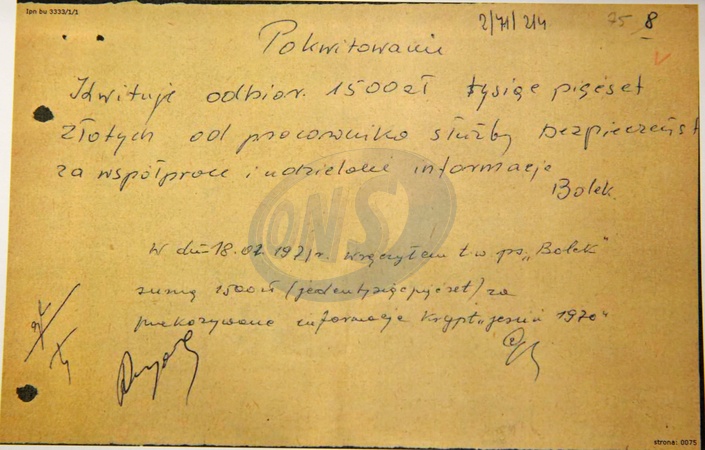 Ipn bu 3333/1/1
2/71/214
75 8
Pokwitowanie
Kwituję odbior. 1500 zł tysiąc pięćset
złotych od pracownika służby bezpieczeńst
za współprace i udzielone informacje
Bolek.
W dn 18.01 1971 r. wręczyłem t.w ps. „Bolek”
sumę 1500 zł (jeden tysiąc pięćset) za
przekazywane informacje krypt „jesień 1970”
ONS
strona: 0075